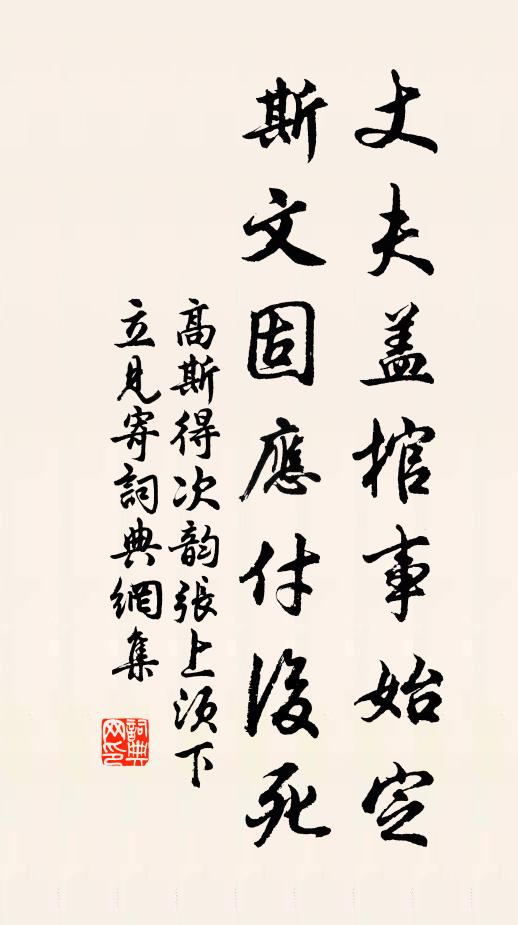 丈夫盖棺事始定
斯文固應付後死
高斯得次韵張上須下
立見寄詞典網集
詞典
网印